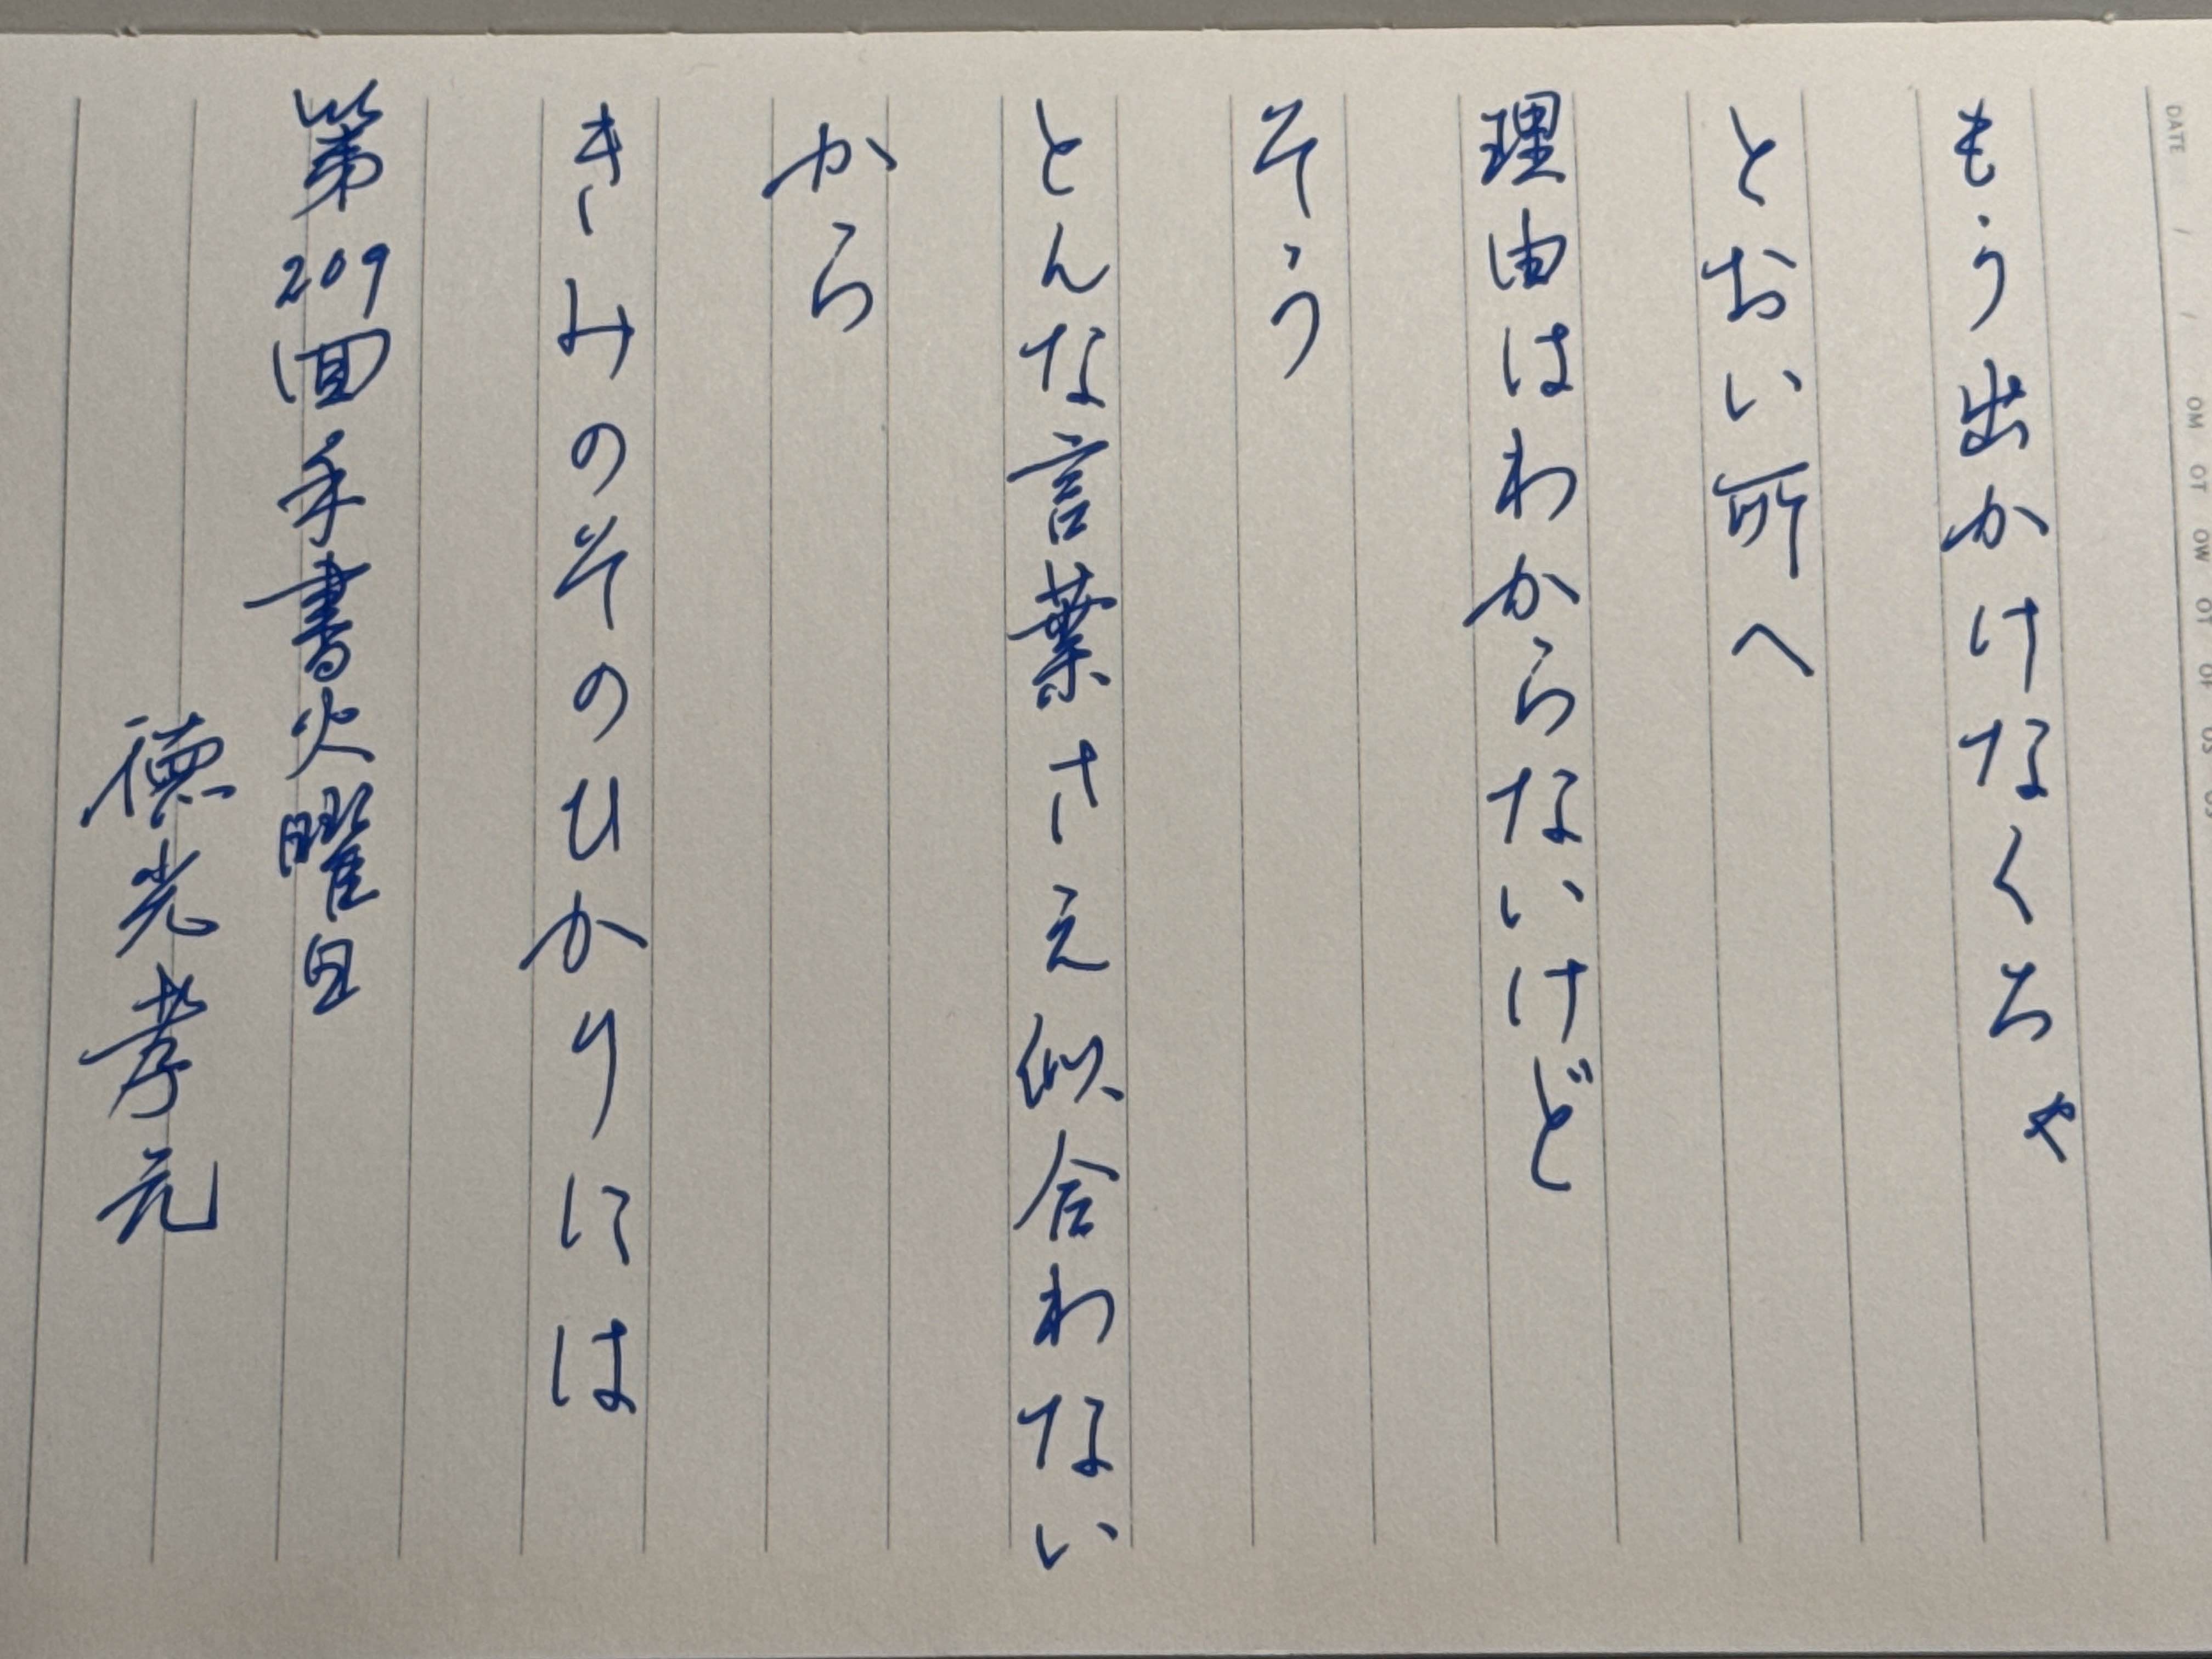 もう出かけなくちゃ
とおい所へ
理由はわからないけど
そう
とんな言葉さえ似合わない
から
きみのそのひかりには
第209回手書火曜日
徳光孝元
DATE / /